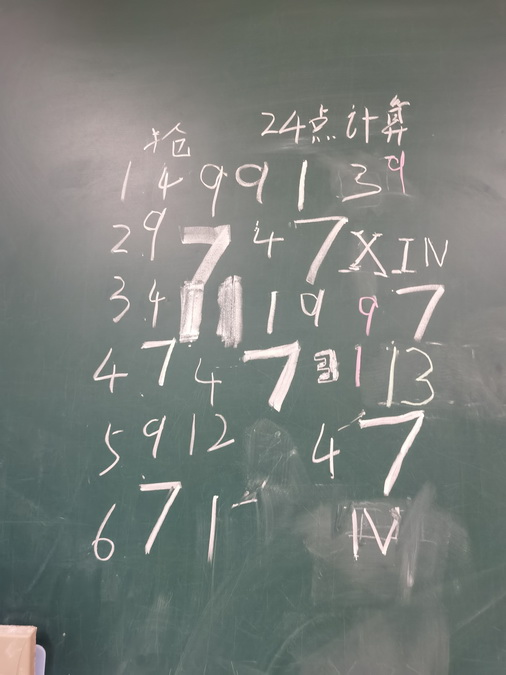 抢 24点计算
1. 4 9 9 1 3 9
2. 9 7 4 7 X I N
3. 4 11 1 9 9 7
4. 7 4 7 3 1 13
5. 9 12 4 7
6. 7 1 IV